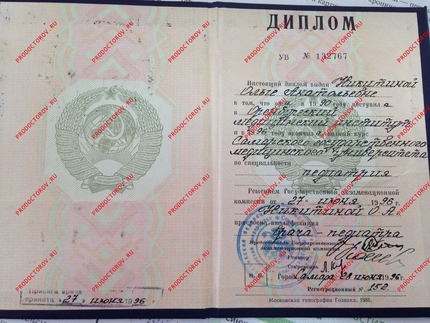 ДИПЛОМ
УВ № 132767
Настоящий диплом выдан Никитиной
Ольге Анатольевне
в том, что она в 1990 году поступила
в Оренбургский
медицинский институт
и в 1996 году окончила полный курс
Самарского государственного
медицинского университета
по специальности
педиатрия
Решением Государственной экзаменационной
комиссии от 27 июня 1996 г.
Никитиной О.А.
присвоена квалификация
врача-педиатра
Председатель Государственной
экзаменационной комиссии
Ректор
Секретарь
М.П. Город Самара 28 июня 1996 г.
Регистрационный № 152
Московская типография Гознака.
27 июня 1996
PRODOCTOROV.RU